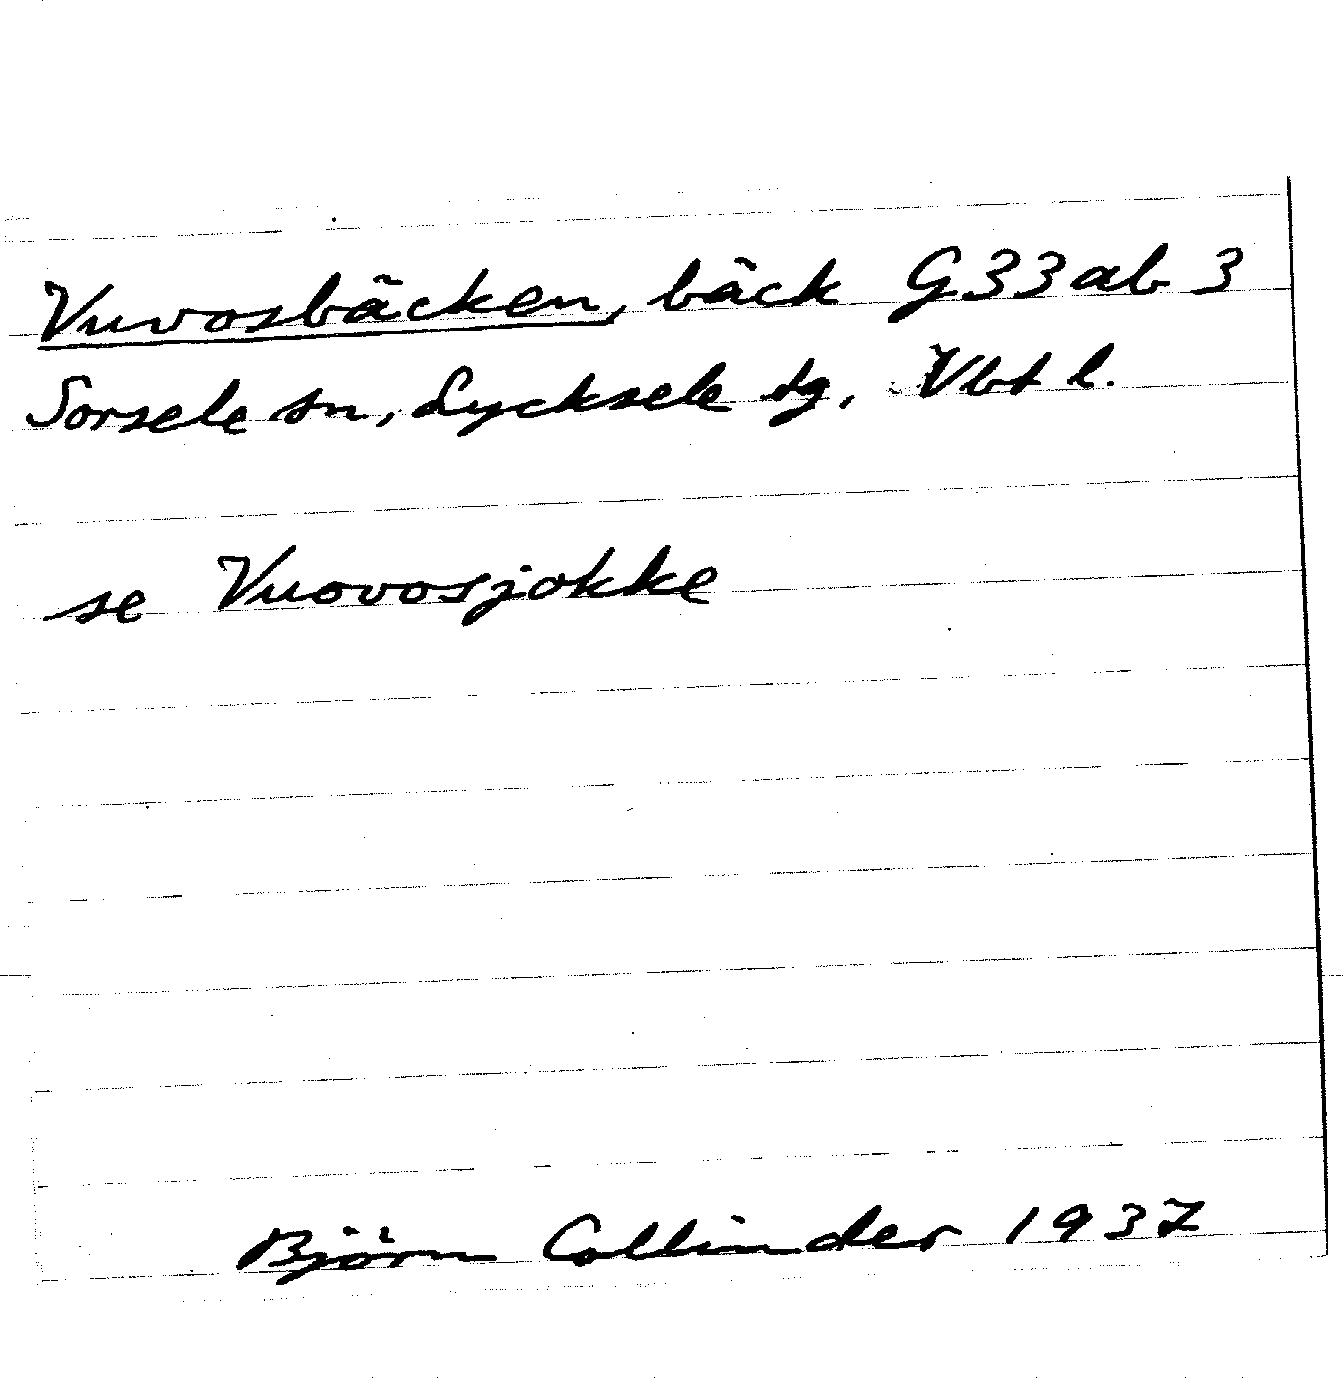 Vuvosbäcken, bäck G33ab3
Sorsele sn, Lycksele tg, Vbt l.
se Vuovosjokke
Björn Collinder 1937